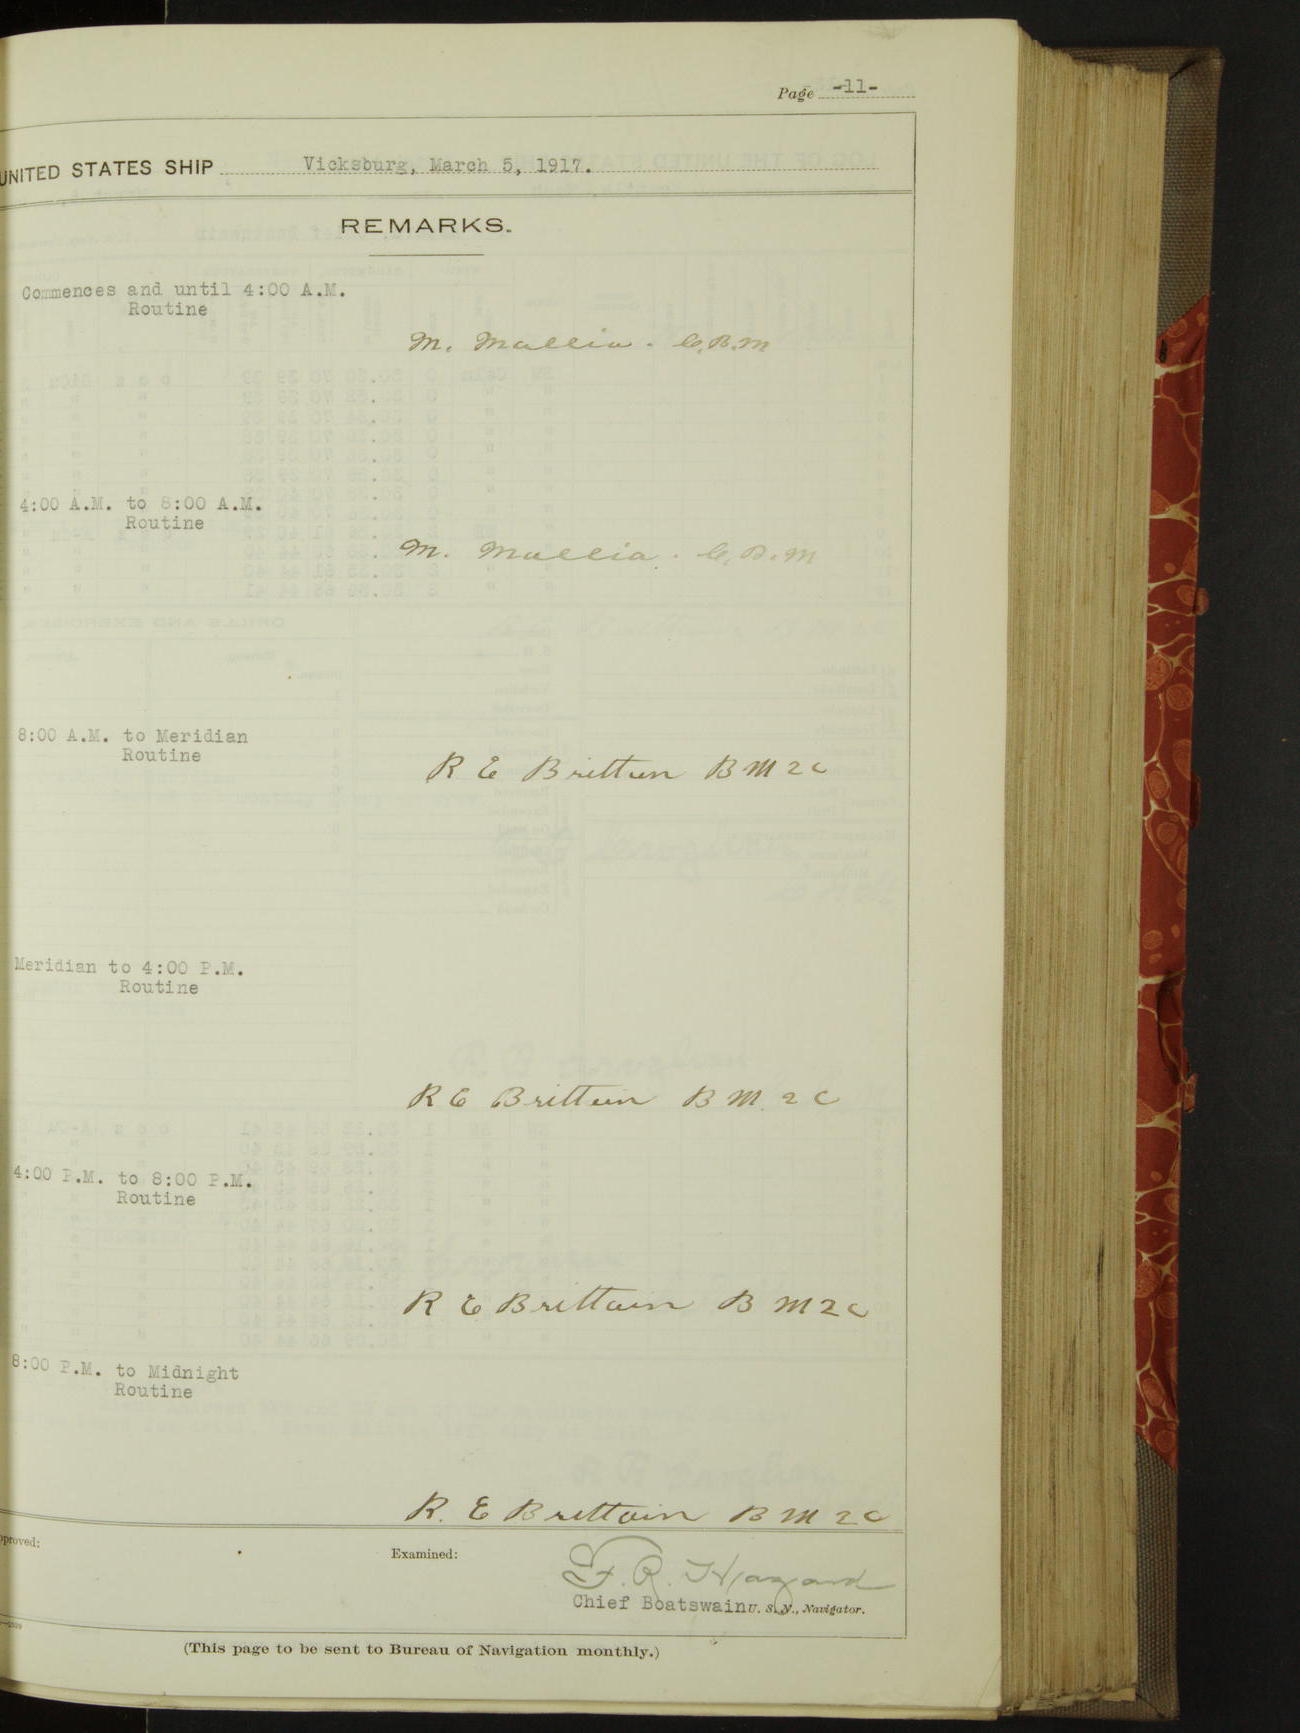 Page -11-
UNITED STATES SHIP Vicksburg, March 5, 1917.
REMARKS.
Commences and until 4:00 A.M.
Routine
M. Mallia. C.B.M
4:00 A.M. to 8:00 A.M.
Routine
M. Mallia. C.B.M
8:00 A.M. to Meridian
Routine
R E Brittain B M 2 C
Meridian to 4:00 P.M.
Routine
R E Brittain B M 2 C
4:00 P.M. to 8:00 P.M.
Routine
R E Brittain B M 2 C
8:00 P.M. to Midnight
Routine
R. E Brittain B M 2 C
pproved:
Examined:
F. R. Hazard
Chief Boatswain U. S. N., Navigator.
(This page to be sent to Bureau of Navigation monthly.)